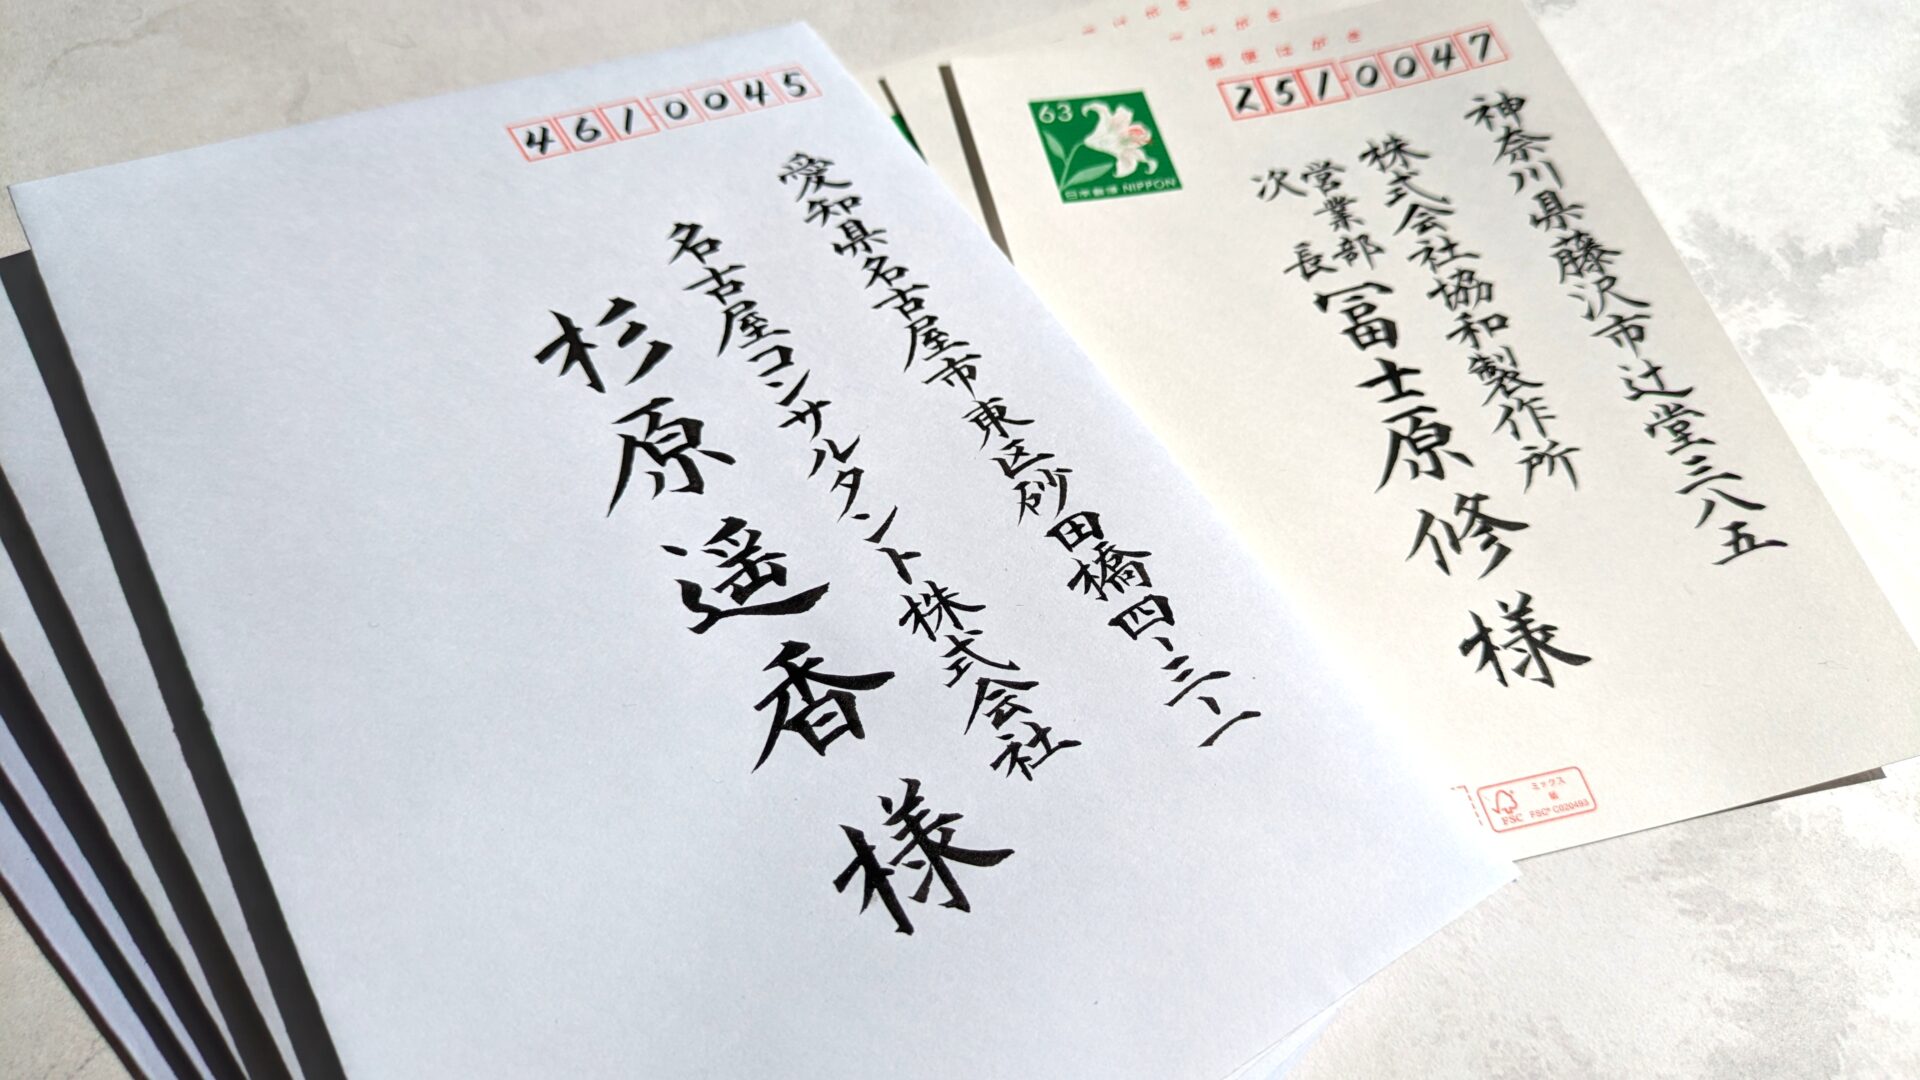 4610045
愛知県名古屋市東区砂田橋四-三-一
名古屋コンサルタント株式会社
杉原遥香様
郵便はがき
2510047
63
日本郵便 NIPPON
神奈川県藤沢市辻堂三八五
株式会社協和製作所
営業部
次長
冨士原修様
ミックス
紙
FSC
FSC® C020493